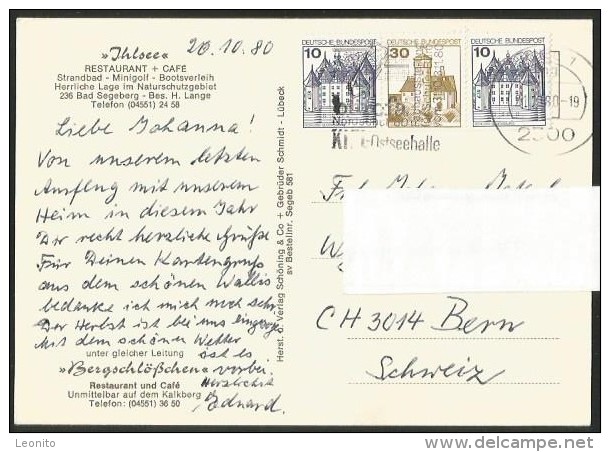 »Ihlsee«
20.10.80
RESTAURANT + CAFÉ
Strandbad - Minigolf - Bootsverleih
Herrliche Lage im Naturschutzgebiet
236 Bad Segeberg - Bes. H. Lange
Telefon (04551) 24 58
Liebe Johanna!
Von unserem letzten
Ausflug mit unserem
Heim in diesem Jahr
Der recht herzliche Grüße
Für Deinen Kartengruß
aus dem schönen Wallis
bedanke ich mich noch sehr.
Der Herbst ist bei uns
Mit dem schönen Wetter
unter gleicher Leitung
ist es
»Bergschlößchen« vorbei.
Restaurant und Café
Herzlichst
Unmittelbar auf dem Kalkberg
Telefon: (04551) 36 50
Eduard.
Herst. u. Verlag Schöning & Co + Gebrüder Schmidt - Lübeck
sv Bestellnr. Segeb 581
DEUTSCHE BUNDESPOST
10
DEUTSCHE BUNDESPOST
30
DEUTSCHE BUNDESPOST
10
80-19
2300
Ostseehalle
CH 3014 Bern
Schweiz
Leonito
www.delcampe.net